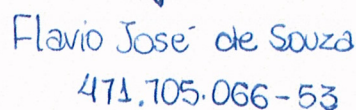 Flavio José de Souza
471.705.066-53